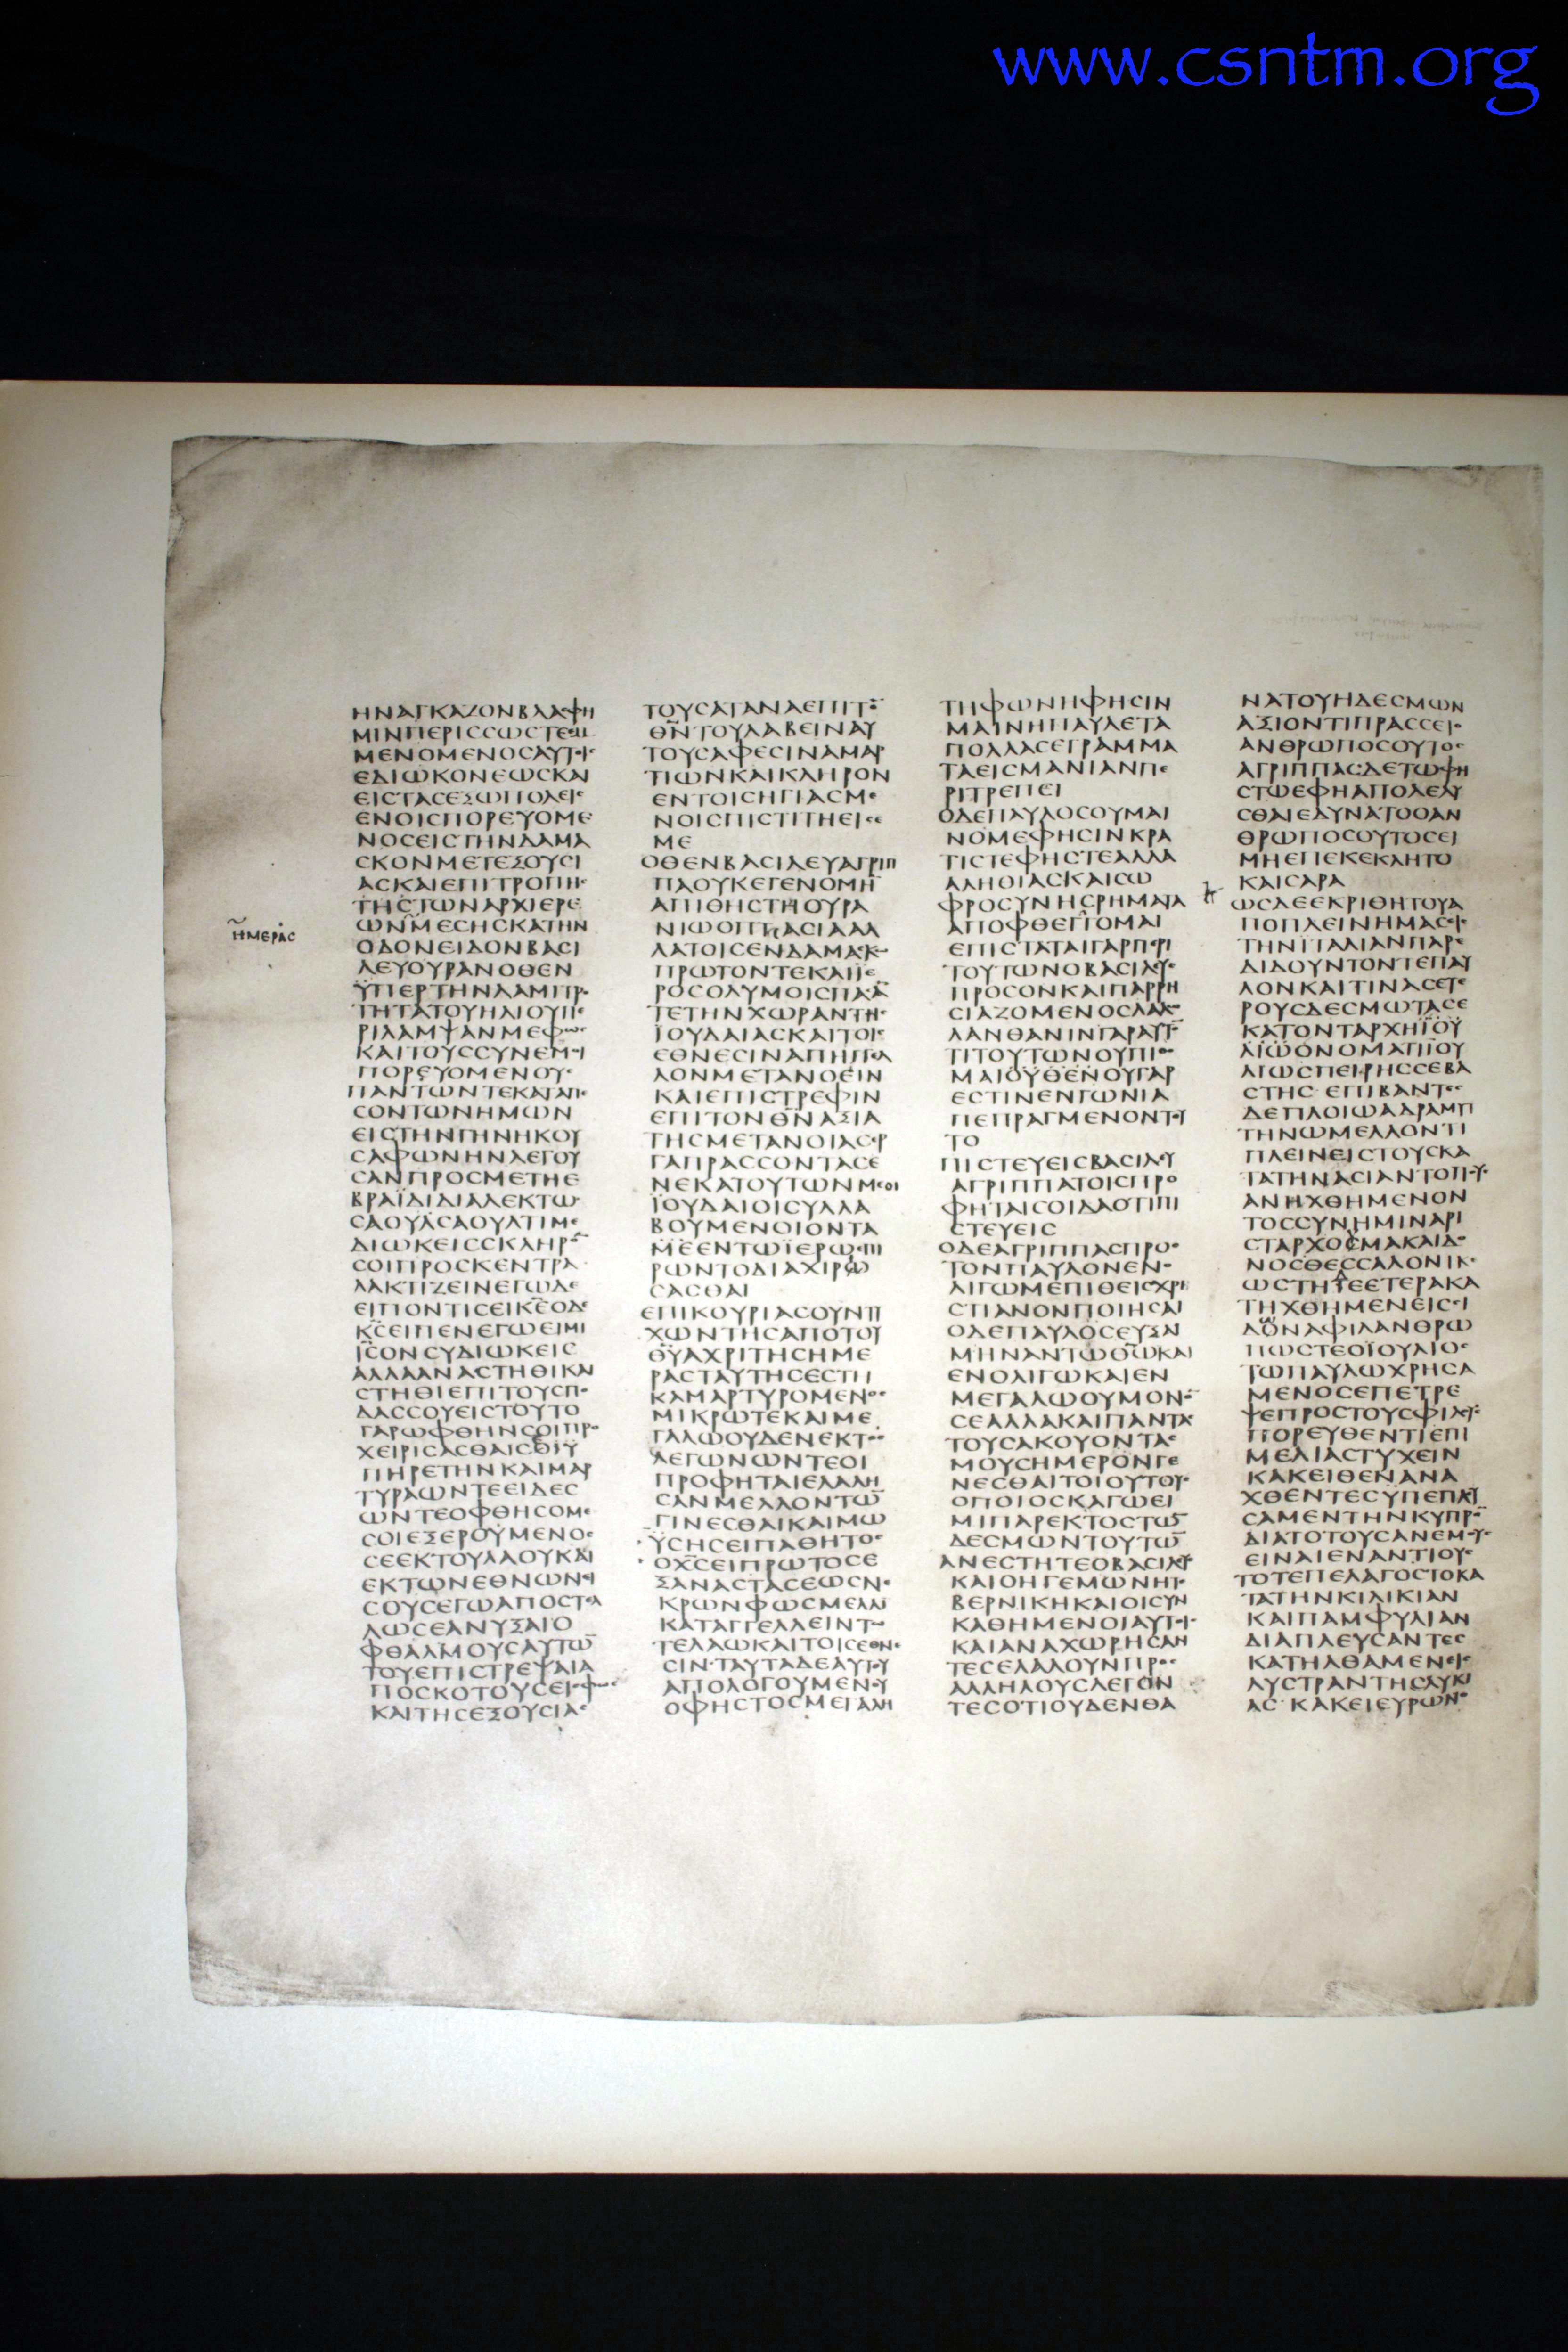 www.csntm.org
ΗΝΑΓΚΑΖΟΝΒΛΑΦΗ
ΜΙΝΠΕΡΙССΩСΤΕ
ΜΕΝΟΜΕΝΟСΑΥΤΟΙС
ΕΔΙΩΚΟΝΕΩСΚΑΙ
ΕΙСΤΑСΕΞΩΠΟΛΕΙС
ΕΝΟΙСΠΟΡΕΥΟΜΕ
ΝΟСΕΙСΤΗΝΔΑΜΑ
СΚΟΝΜΕΤΕΞΟΥСΙ
ΑСΚΑΙΕΠΙΤΡΟΠΗС
ΤΗСΤΩΝΑΡΧΙΕΡΕ
ΗΜΕΡΑС
ΩΝΜΕСΗСΚΑΤΗΝ
ΟΔΟΝΕΙΔΟΝΒΑСΙ
ΛΕΥΟΥΡΑΝΟΘΕΝ
ΫΠΕΡΤΗΝΛΑΜΠΡΟ
ΤΗΤΑΤΟΥΗΛΙΟΥΠΕ
ΡΙΛΑΜΨΑΝΜΕΦΩС
ΚΑΙΤΟΥССΥΝΕΜΟΙ
ΠΟΡΕΥΟΜΕΝΟΥС
ΠΑΝΤΩΝΤΕΚΑΤΑΠΕ
СΟΝΤΩΝΗΜΩΝ
ΕΙСΤΗΝΓΗΝΗΚΟΥ
СΑΦΩΝΗΝΛΕΓΟΥ
СΑΝΠΡΟСΜΕΤΗΕ
ΒΡΑΪΔΙΔΙΑΛΕΚΤΩ
СΑΟΥΛСΑΟΥΛΤΙΜΕ
ΔΙΩΚΕΙССΚΛΗΡΟ̅
СΟΙΠΡΟСΚΕΝΤΡΑ
ΛΑΚΤΙΖΕΙΝΕΓΩΔΕ
ΕΙΠΟΝΤΙСΕΙΚ̅Ε̅ΟΔΕ
Κ̅С̅ΕΙΠΕΝΕΓΩΕΙΜΙ
Ι̅С̅ΟΝСΥΔΙΩΚΕΙС
ΑΛΛΑΑΝΑСΤΗΘΙΚΑΙ
СΤΗΘΙΕΠΙΤΟΥСΠΟ
ΔΑССΟΥΕΙСΤΟΥΤΟ
ΓΑΡΩΦΘΗΝСΟΙΠΡΟ
ΧΕΙΡΙСΑСΘΑΙСΕΫ
ΠΗΡΕΤΗΝΚΑΙΜΑΡ
ΤΥΡΑΩΝΤΕΕΙΔΕС
ΩΝΤΕΟΦΘΗСΟΜΕ
СΟΙΕΞΕΡΟΥΜΕΝΟС
СΕΕΚΤΟΥΛΑΟΥΚΑΙ
ΕΚΤΩΝΕΘΝΩΝΟΙ
СΟΥСΕΓΩΑΠΟСΤΕΛ
ΛΩСΕΑΝΥΞΑΙΟ
ΦΘΑΛΜΟΥСΑΥΤΩ̅
ΤΟΥΕΠΙСΤΡΕΨΑΙΑ
ΠΟСΚΟΤΟΥСΕΙСΦΩС
ΚΑΙΤΗСΕΞΟΥСΙΑС
ΤΟΥСΑΤΑΝΑΕΠΙΤΟ̅
Θ̅Ν̅ΤΟΥΛΑΒΕΙΝΑΥ
ΤΟΥСΑΦΕСΙΝΑΜΑΡ
ΤΙΩΝΚΑΙΚΛΗΡΟΝ
ΕΝΤΟΙСΗΓΙΑСΜΕ
ΝΟΙСΠΙСΤΙΤΗΕΙСΕ
ΜΕ
ΟΘΕΝΒΑСΙΛΕΥΑΓΡΙΠ
ΠΑΟΥΚΕΓΕΝΟΜΗ̅
ΑΠΙΘΗСΤΗΟΥΡΑ
ΝΙΩΟΠΤΑСΙΑΑΛ
ΛΑΤΟΙСΕΝΔΑΜΑСΚΩ
ΠΡΩΤΟΝΤΕΚΑΙΪΕ
ΡΟСΟΛΥΜΟΙСΠΑСΑ̅
ΤΕΤΗΝΧΩΡΑΝΤΗС
ΪΟΥΔΑΙΑСΚΑΙΤΟΙС
ΕΘΝΕСΙΝΑΠΗΓΓΕΛ
ΛΟΝΜΕΤΑΝΟΕΙΝ
ΚΑΙΕΠΙСΤΡΕΦΙΝ
ΕΠΙΤΟΝΘ̅Ν̅ΑΞΙΑ
ΤΗСΜΕΤΑΝΟΙΑСΕΡ
ΓΑΠΡΑССΟΝΤΑСΕ
ΝΕΚΑΤΟΥΤΩΝΜΕΟΙ
ΪΟΥΔΑΙΟΙСΥΛΛΑ
ΒΟΥΜΕΝΟΙΟΝΤΑ
ΜΕΕΝΤΩΪΕΡΩΕΠΙ
ΡΩΝΤΟΔΙΑΧΙΡΩ
СΑСΘΑΙ
ΕΠΙΚΟΥΡΙΑСΟΥΝΤΥ
ΧΩΝΤΗСΑΠΟΤΟΥ
Θ̅Υ̅ΑΧΡΙΤΗСΗΜΕ
ΡΑСΤΑΥΤΗСΕСΤΗ
ΚΑΜΑΡΤΥΡΟΜΕΝΟС
ΜΙΚΡΩΤΕΚΑΙΜΕ
ΓΑΛΩΟΥΔΕΝΕΚΤΟС
ΛΕΓΩΝΩΝΤΕΟΙ
ΠΡΟΦΗΤΑΙΕΛΑΛΗ
СΑΝΜΕΛΛΟΝΤΩ̅
ΓΙΝΕСΘΑΙΚΑΙΜΩ
ΥСΗСΕΙΠΑΘΗΤΟС
ΟΧ̅С̅ΕΙΠΡΩΤΟСΕ
ΞΑΝΑСΤΑСΕΩСΝΕ
ΚΡΩΝΦΩСΜΕΛΛΙ
ΚΑΤΑΓΓΕΛΛΕΙΝΤΩ
ΤΕΛΑΩΚΑΙΤΟΙСΕΘΝΕ
СΙΝ·ΤΑΥΤΑΔΕΑΥΤΟΥ
ΑΠΟΛΟΓΟΥΜΕΝΟΥ
ΟΦΗСΤΟСΜΕΓΑΛΗ
ΤΗΦΩΝΗΦΗСΙΝ
ΜΑΙΝΗΠΑΥΛΕΤΑ
ΠΟΛΛΑСΕΓΡΑΜΜΑ
ΤΑΕΙСΜΑΝΙΑΝΠΕ
ΡΙΤΡΕΠΕΙ
ΟΔΕΠΑΥΛΟСΟΥΜΑΙ
ΝΟΜΕΦΗСΙΝΚΡΑ
ΤΙСΤΕΦΗСΤΕΑΛΛΑ
ΑΛΗΘΙΑСΚΑΙСΩ
ΦΡΟСΥΝΗСΡΗΜΑΤΑ
ΑΠΟΦΘΕΓΓΟΜΑΙ
ΕΠΙСΤΑΤΑΙΓΑΡΠΕΡΙ
ΤΟΥΤΩΝΟΒΑСΙΛΕΥС
ΠΡΟСΟΝΚΑΙΠΑΡΡΗ
СΙΑΖΟΜΕΝΟСΛΑΛΩ
ΛΑΝΘΑΝΙΝΓΑΡΑΥΤΟ̅
ΤΙΤΟΥΤΩΝΟΥΠΙΘΟ
ΜΑΙΟΥΘΕΝΟΥΓΑΡ
ΕСΤΙΝΕΝΓΩΝΙΑ
ΠΕΠΡΑΓΜΕΝΟΝΤΟΥ
ΤΟ
ΠΙСΤΕΥΕΙСΒΑСΙΛΕΥ
ΑΓΡΙΠΠΑΤΟΙСΠΡΟ
ΦΗΤΑΙСΟΙΔΑΟΤΙΠΙ
СΤΕΥΕΙС
ΟΔΕΑΓΡΙΠΠΑСΠΡΟС
ΤΟΝΠΑΥΛΟΝΕΝΟ
ΛΙΓΩΜΕΠΙΘΕΙСΧΡΗ
СΤΙΑΝΟΝΠΟΙΗСΑΙ
ΟΔΕΠΑΥΛΟСΕΥΞΑΙ
ΜΗΝΑΝΤΩΘ̅Ω̅ΚΑΙ
ΕΝΟΛΙΓΩΚΑΙΕΝ
ΜΕΓΑΛΩΟΥΜΟΝΟ̅
СΕΑΛΛΑΚΑΙΠΑΝΤΑС
ΤΟΥСΑΚΟΥΟΝΤΑС
ΜΟΥСΗΜΕΡΟΝΓΕ
ΝΕСΘΑΙΤΟΙΟΥΤΟΥС
ΟΠΟΙΟСΚΑΓΩΕΙ
ΜΙΠΑΡΕΚΤΟСΤΩ̅
ΔΕСΜΩΝΤΟΥΤΩ̅
ΑΝΕСΤΗΤΕΟΒΑСΙΛΕΥС
ΚΑΙΟΗΓΕΜΩΝΗΤΕ
ΒΕΡΝΙΚΗΚΑΙΟΙСΥΝ
ΚΑΘΗΜΕΝΟΙΑΥΤΟΙС
ΚΑΙΑΝΑΧΩΡΗСΑΝ
ΤΕСΕΛΑΛΟΥΝΠΡΟС
ΑΛΛΗΛΟΥСΛΕΓΟΝ
ΤΕСΟΤΙΟΥΔΕΝΘΑ
ΝΑΤΟΥΗΔΕСΜΩΝ
ΑΞΙΟΝΤΙΠΡΑССΕΙΟ
ΑΝΘΡΩΠΟСΟΥΤΟС
ΑΓΡΙΠΠΑСΔΕΤΩΦΗ
СΤΩΕΦΗΑΠΟΛΕΛΥ
СΘΑΙΕΔΥΝΑΤΟΟΑΝ
ΘΡΩΠΟСΟΥΤΟСΕΙ
ΜΗΕΠΕΚΕΚΛΗΤΟ
ΚΑΙСΑΡΑ
ΩСΔΕΕΚΡΙΘΗΤΟΥΑ
ΠΟΠΛΕΙΝΗΜΑСΕΙС
ΤΗΝΙΤΑΛΙΑΝΠΑΡΕ
ΔΙΔΟΥΝΤΟΝΤΕΠΑΥ
ΛΟΝΚΑΙΤΙΝΑСΕΤΕ
ΡΟΥСΔΕСΜΩΤΑСΕ
ΚΑΤΟΝΤΑΡΧΗΪΟΥ
ΛΙΩΟΝΟΜΑΤΙΪΟΥ
ΛΙΩСΠΕΙΡΗССΕΒΑ
СΤΗС ΕΠΙΒΑΝΤΕС
ΔΕΠΛΟΙΩΑΔΡΑΜΥ
ΤΗΝΩΜΕΛΛΟΝΤΙ
ΠΛΕΙΝΕΙСΤΟΥСΚΑ
ΤΑΤΗΝΑСΙΑΝΤΟΠΟΥС
ΑΝΗΧΘΗΜΕΝΟΝ
ΤΟССΥΝΗΜΙΝΑΡΙ
СΤΑΡΧΟΥΜΑΚΑΙΔΟ
ΝΟСΘΕССΑΛΟΝΙΚΕ
ΩСΤΗΤΕΕΤΕΡΑΚΑ
ΤΗΧΘΗΜΕΝΕΙССΙ
ΔΟΝΑΦΙΛΑΝΘΡΩ
ΠΩСΤΕΟΪΟΥΛΙΟС
ΤΩΠΑΥΛΩΧΡΗСΑ
ΜΕΝΟСΕΠΕΤΡΕ
ΨΕΠΡΟСΤΟΥСΦΙΛΟΥС
ΠΟΡΕΥΘΕΝΤΙΕΠΙ
ΜΕΛΙΑСΤΥΧΕΙΝ
ΚΑΚΕΙΘΕΝΑΝΑ
ΧΘΕΝΤΕСΫΠΕΠΛΕΥ
СΑΜΕΝΤΗΝΚΥΠΡΟ̅
ΔΙΑΤΟΤΟΥСΑΝΕΜΟΥС
ΕΙΝΑΙΕΝΑΝΤΙΟΥС
ΤΟΤΕΠΕΛΑΓΟСΤΟΚΑ
ΤΑΤΗΝΚΙΛΙΚΙΑΝ
ΚΑΙΠΑΜΦΥΛΙΑΝ
ΔΙΑΠΛΕΥСΑΝΤΕС
ΚΑΤΗΛΘΑΜΕΝΕΙС
ΛΥСΤΡΑΝΤΗСΛΥΚΙ
ΑС ΚΑΚΕΙΕΥΡΩΝΟ